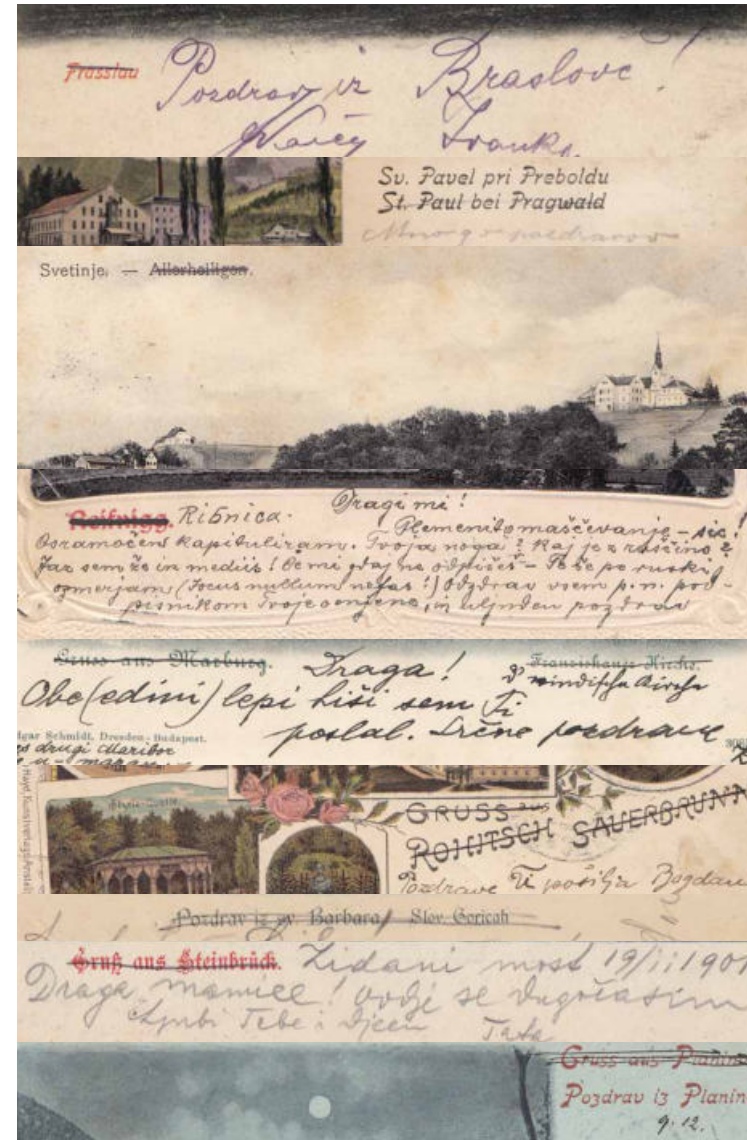 Frasslau
Pozdrav iz Braslovč!
Ivanka
Sv. Pavel pri Preboldu
St. Paul bei Pragwald
Mnogo pozdravov
Svetinje. — Allerheiligen.
Dragi mi!
Reifnigg. Ribnica.
Plemenito maščevanje – sic!
Osramočen kapituliram. Tvoja noga? Kaj je z roščino?
Jaz sem že in mediis! Če mi zdaj ne odpišeš – Te že po ruski
ozmerjam (Jocus nullum nefas!) Odzdrav vsem p. n. pod-
pisnikom Tvoje cenjene, in uljuden pozdrav
Gruss aus Marburg. Draga! Franziskaner Kirche.
windische Kirche
Obe (edini) lepi hiši sem Ti
poslal. Srčne pozdrave
dgar Schmidt, Dresden-Budapest.
drugi Maribor
GRUSS aus
ROHITSCH SAUERBRUNN
Pozdrave Ti pošilja Bogdan
Pozdrav iz sv. Barbara / Slov. Goricah
Gruß aus Steinbrück. Zidani most 19/11 1901
Draga mamice! Ovdje se dugočasim
Ljubi Tebe i djecu Tata
Gruss aus Planin
Pozdrav iz Planin
9. 12.